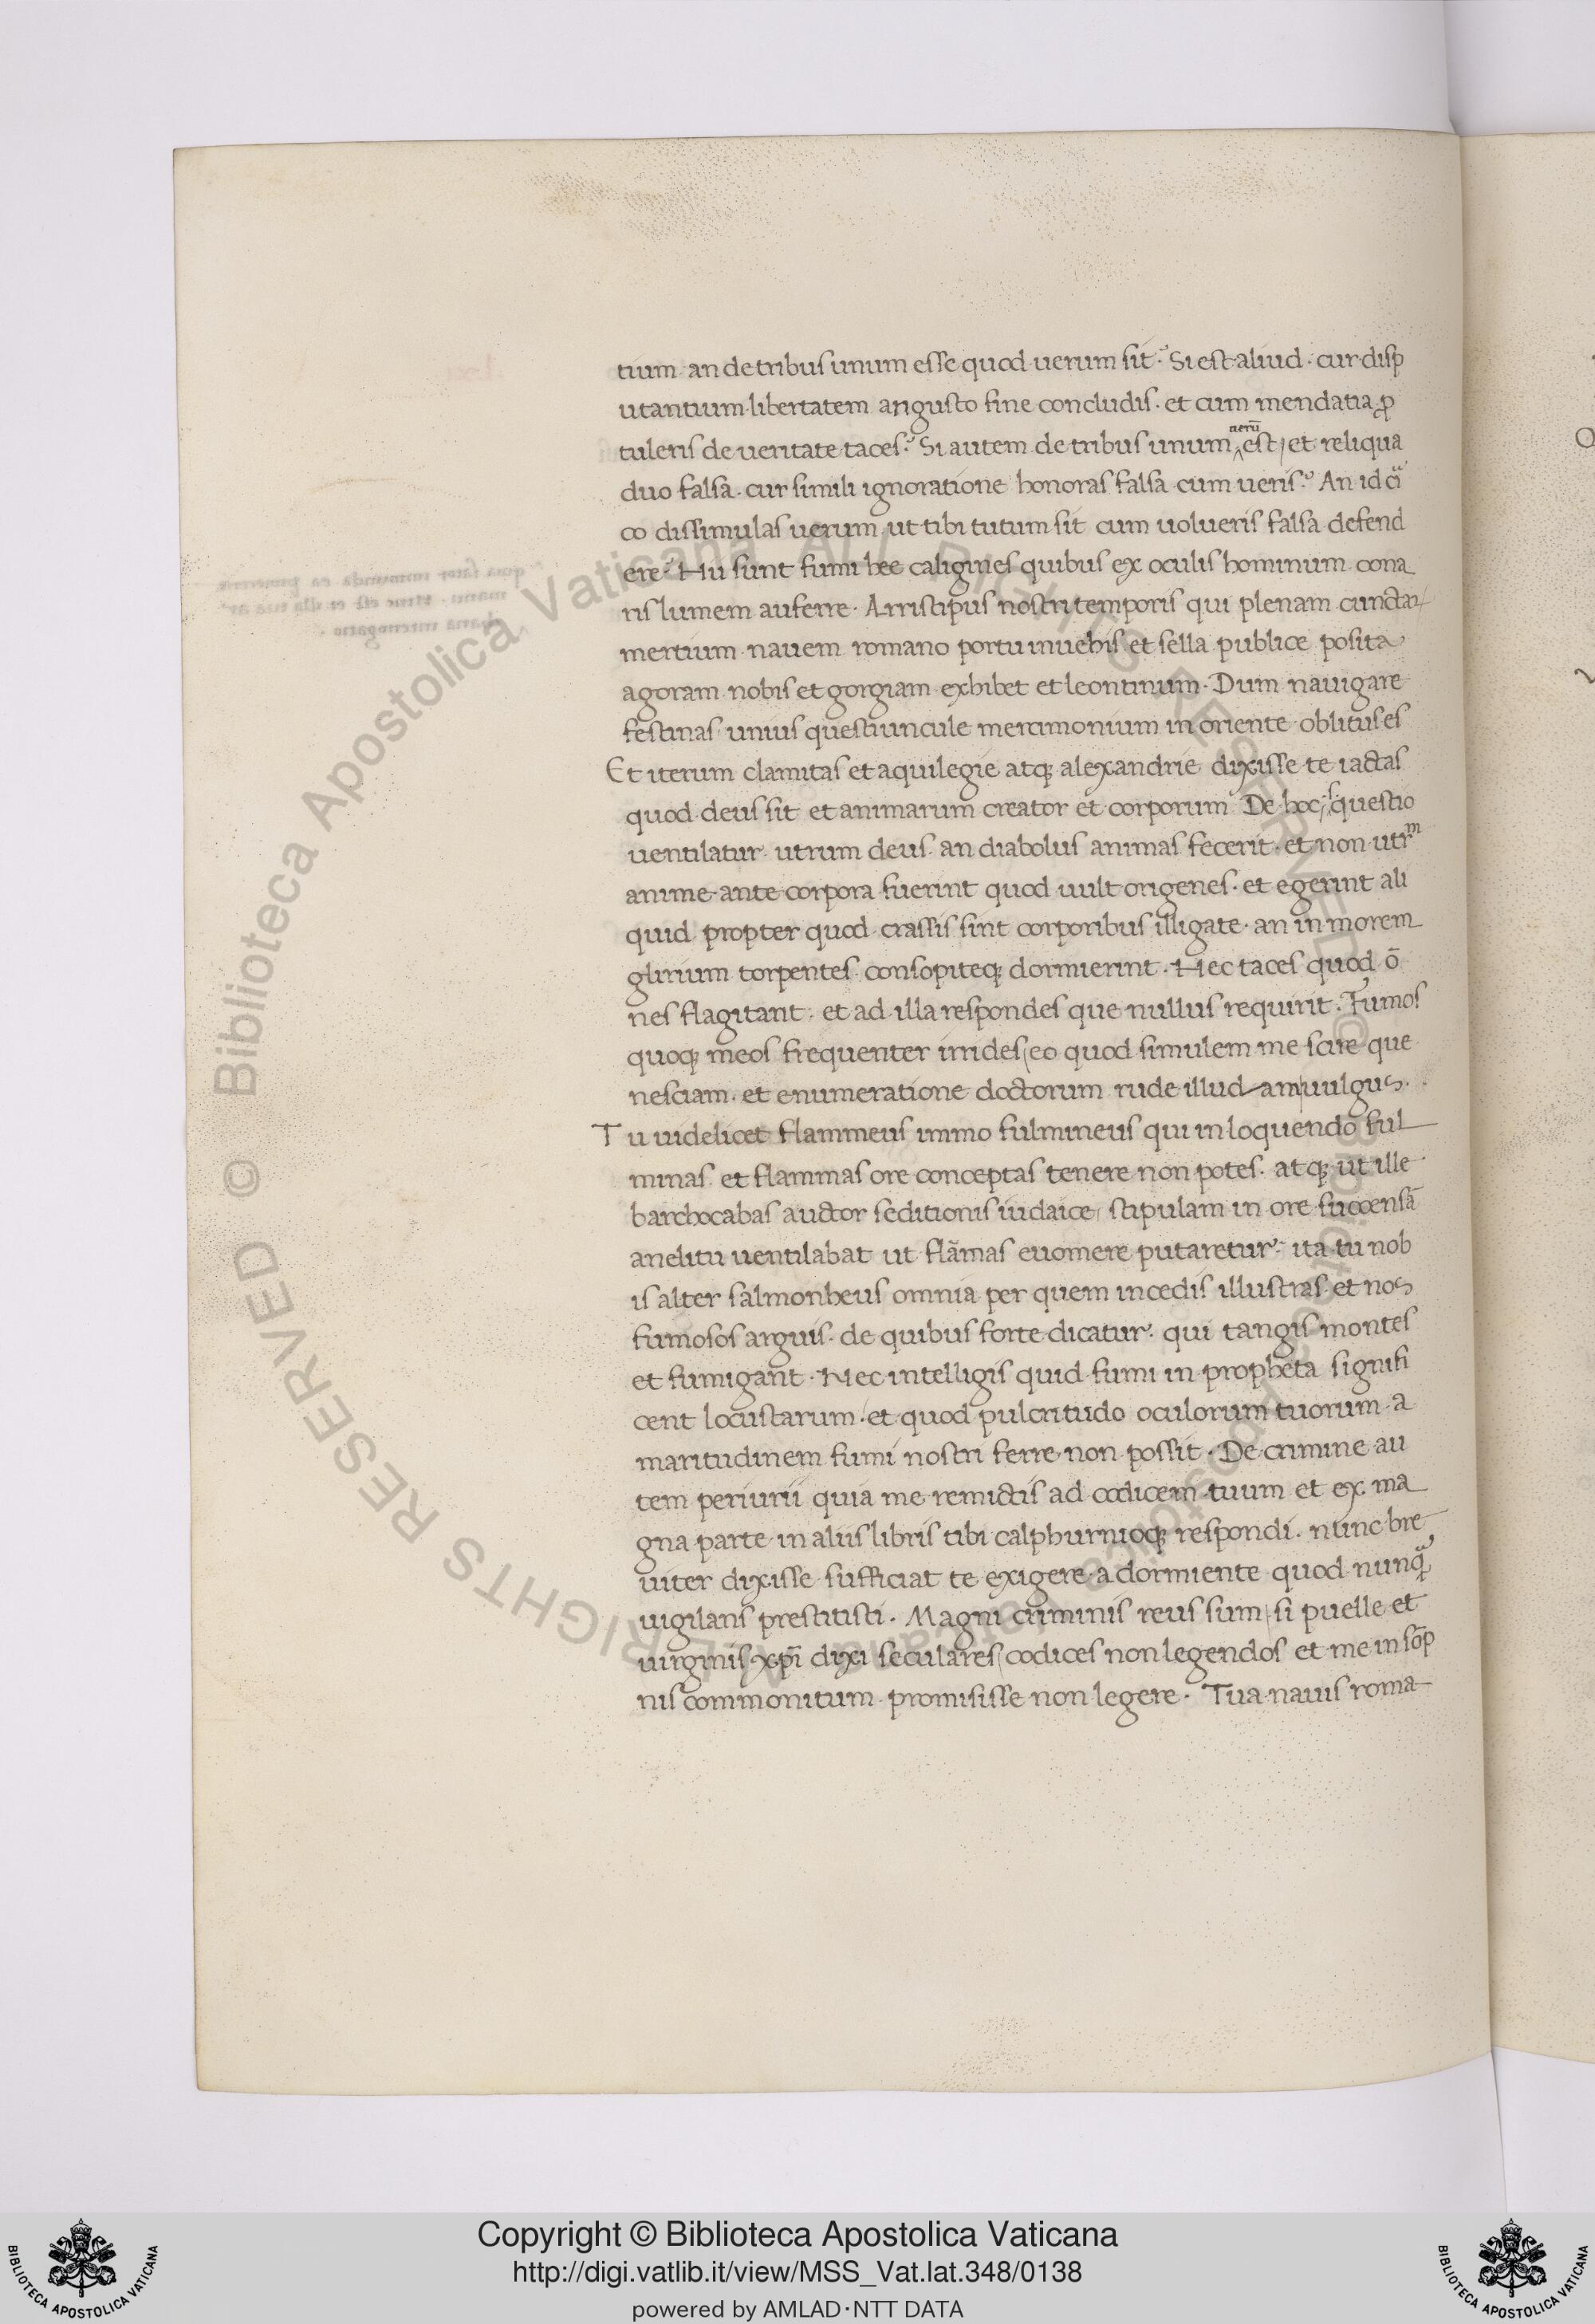 tium an de tribus unum esse quod uerum sit? Si est aliud · cur disp
utantium libertatem angusto fine concludis · et cum mendatia ꝓ
tuleris de ueritate taces? Si autem de tribus unum ‸uerū est / et reliqua
duo falsa · cur simili ignoratione honoras falsa cum ueris? An id ciᵃ
co dissimulas uerum ut tibi tutum sit cum uolueris falsa defend
ere? Hii sunt fumi hee caligines quibus ex oculis hominum cona
ris lumem auferre · Arristipus nostri temporis qui plenam cunctar
mertium nauem romano portu inuehis et sella publice posita
agoram nobis et gorgiam exhibet et leontinum · Dum nauigare
festinas unius questiuncule mercimonium in oriente oblitus es
Et iterum clamitas et aquilegie atqꝫ alexandrie dixisse te iactas
quod deus sit et animarum creator et corporum De hoc · s · questio
uentilatur utrum deus an diabolus animas fecerit · et non utrᵐ
anime ante corpora fuerint quod uult origenes · et egerint ali
quid propter quod crassis sint corporibus illigate · an in morem
glirium torpentes consopiteqꝫ dormierint · Hec taces quod ō
nes flagitant · et ad illa respondes que nullus requirit · Fumos
quoqꝫ meos frequenter irrides / eo quod simulem me scire que
nesciam · et enumeratione doctorum rude illud am uulgus ·
Tu uidelicet flammeus immo fulmineus qui in loquendo ful
minas et flammas ore conceptas tenere non potes · atqꝫ ut ille
barchocabas auctor seditionis iudaice / stipulam in ore succensā
anelitu uentilabat ut flāmas euomere putaretur · ita tu nob
is alter salmonheus omnia per quem incedis illustras · et nos
fumosos arguis · de quibus forte dicatur · qui tangis montes
et fumigant · Nec intelligis quid fumi in propheta signifi
cent locustarum · et quod pulcritudo oculorum tuorum a
maritudinem fumi nostri ferre non possit · De crimine au
tem periurii quia me remictis ad codicem tuum et ex ma
gna parte in aliis libris tibi calphurnioqꝫ respondi · nunc bre
uiter dixisse sufficiat te exigere a dormiente quod nunqᵃ
uigilans prestitisti · Magni criminis reus sum / si puelle et
uirginis xp̄i dixi seculares / codices non legendos et me in sōp
nis commonitum promisisse non legere · Tua nauis roma
Copyright © Biblioteca Apostolica Vaticana
http://digi.vatlib.it/view/MSS_Vat.lat.348/0138
powered by AMLAD·NTT DATA